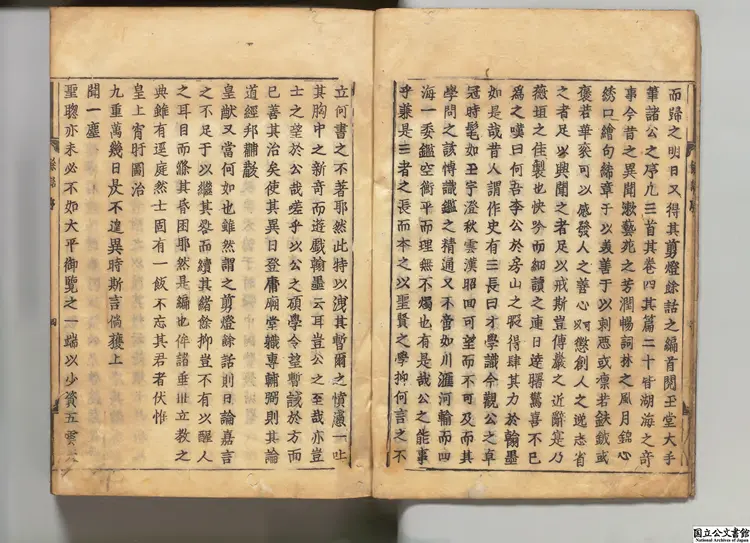 而歸之明日又得其剪燈餘話之編首閱玉堂大手
筆諸公之序凡三首其卷四其篇二十皆湖海之奇
事今昔之異聞漱藝苑之芳潤暢詞林之風月錦心
綉口繪句絺章于以美善于以刺惡或凛若鈇鉞或
褒若華衮可以感發人之善心可懲創人之逸志省
之者足以興聞之者足以戒斯豈傅巖之近辭寔乃
薇垣之佳製也快吟而細讀之連日達曙驚喜不已
為之嘆曰何吾李公於房山之暇得肆其力於翰墨
如是哉昔人謂作史有三長曰才學識今觀公之卓
冠時髦如玉宇澄秋雲漢昭回可望而不可及而其
學問之該博識鑑之精通又不啻如川滙河輸而四
海一委鑑空衡平而理無不燭也有是哉公之能事
乎兼是三者之長而本之以聖賢之學抑何言之不
立何書之不著耶然此特以洩其暫爾之憤懣一吐
其胸中之新奇而遊戲翰墨云耳豈公之至哉亦豈
士之望於公哉嗟乎以公之碩學令望暫該於方面
已善其治矣使其異日登庸廟堂職專輔弼則其論
道經邦黼黻
皇猷又當何如也雖然謂之剪燈餘話則日論嘉言
之不足于以繼其晷而續其緒餘抑豈不有以醒人
之耳目而滌其昏困耶然是編也俾諸垂丗立教之
典雖有逕庭然士固有一飯不忘其君者伏惟
皇上宵旰圖治
九重萬幾日昃不遑異時斯言倘獲上
聞一塵
聖聦亦未必不如太平御覽之一端以少資五雲
四
国立公文書館
National Archives of Japan